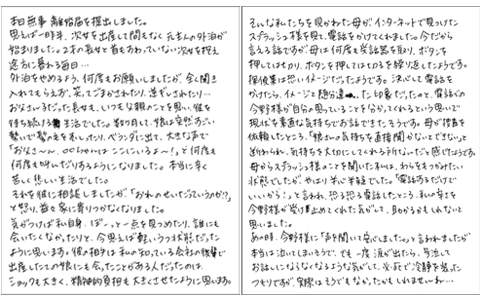 本日無事離婚届を提出しました。
思えば一昨年、次女を出産して間もなく元主人の外泊が
始まりました。2才の長女と首もすわっていない次女を抱え
途方に暮れる毎日…
外泊をやめるよう、何度もお願いしましたが、全く聞き
入れてもらえず、笑ってごまかされたり、逆ギレされたり…
お父さん子だった長女も、いつもな親のことを思い、彼を
待ち続ける生活でした。数ヶ月して、娘は突然すごい
勢いで髪の毛をむしったり、ベランダに出て、大きな声で
「お父さーん、○○ちゃんはここにいるよー!」と何度も
何度も叫んだりするようになりました。本当に辛く
苦しく悲しい生活でした。
それを彼に相談しましたが「おれのせいだっていうのか!?」
と怒り、益々家に寄りつかなくなりました。
気がつけば私自身、ぼーっと一点を見つめたり、誰にも
会いたくなかったりと、今思えば軽いうつ状態だった
ように思います。彼の相手は私の知っている会社の後輩で
出産したての娘にも会ったことがある人だったのは、
ショックも大きく、精神的負担も大きくさせたように思います。
そんな私たちを見かねた母が、インターネットで見つけた
スプラッシュ様を見て、電話をかけてくれました。今だから
言える話ですが、母は何度も受話器を取り、ボタンを
押してはもどり、ボタンを押してはもどるを繰り返したようです。
探偵業は恐いイメージだったようです。決心して電話を
かけたら、イメージと随分違った印象だったのと、電話の
今野様が自分の思っていることを分かってくれるという思いで
現状を素直な気持ちでお話できたそうです。母が捜査を
依頼したところ、「娘さんの気持ちを直接聞かないとできない」と
断わられ、気持ちを大切にしてくれる所なんだと感じたようです。
母からスプラッシュ様のことを聞いた私は、わらをもつかみたい
状態でしたが、やはり半心半疑でした。「電話するだけで
いいから」と言われ、恐る恐る電話したところ、私の辛さを
今野様が受け止めてくれた気がして、身をかがめて人じゃないと
思いました。
あの時、今野様に「声を聞いて安心しました。」と言われましたが
本当は泣いてしまいそうで、でも一度涙が出たら、号泣して
お話しにならなくなるような気がして、必死で冷静を装った
つもりですが、実際はそうでもなかったかもしれませんね…